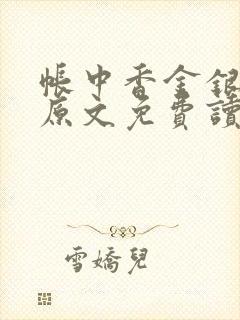 帳中香金銀
原文免費讀
雪嬌兒